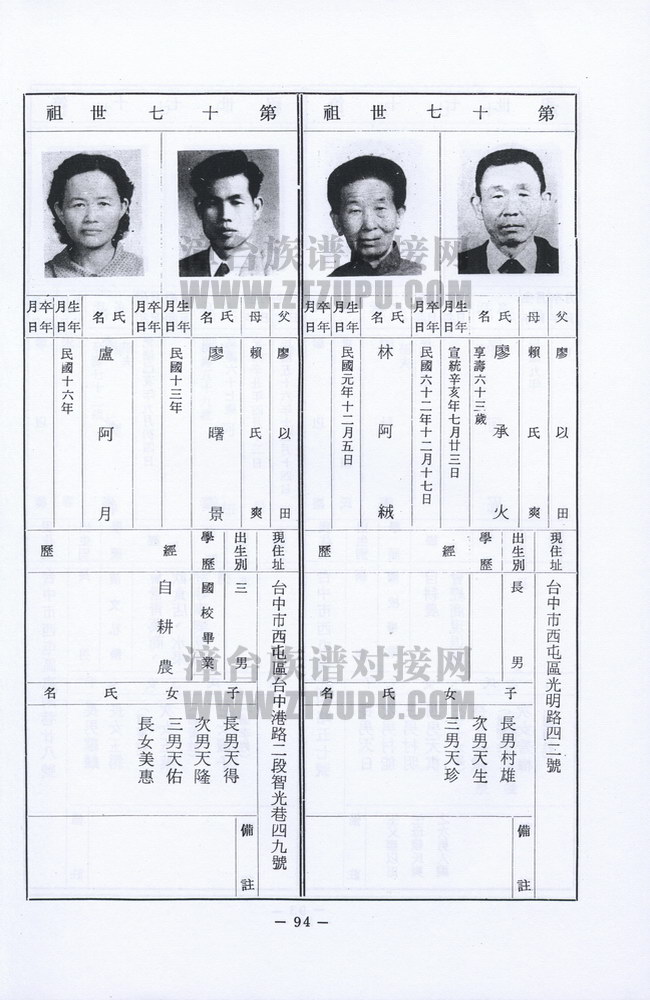 第十七世祖
父 廖以田
母 賴氏爽
氏名 廖承火
享壽六十三歲
生年月日 宣統辛亥年七月廿三日
卒年月日 民國六十二年十二月十七日
氏名 林阿絨
生年月日 民國元年十二月五日
卒年月日
現住址 台中市西屯區光明路四二號
出生別 長男
學歷
經歷
子女氏名
長男村雄
次男天生
三男天珍
備註
第十七世祖
父 廖以田
母 賴氏爽
氏名 廖曙景
生年月日 民國十三年
卒年月日
氏名 盧阿月
生年月日 民國十六年
卒年月日
現住址 台中市西屯區台中港路二段智光巷四九號
出生別 三男
學歷 國校畢業
經歷 自耕農
子女氏名
長男天得
次男天隆
三男天佑
長女美惠
備註
漳台族谱对接网
WWW.ZTZUPU.COM
漳台族谱对接网
WWW.ZTZUPU.COM
— 94 —